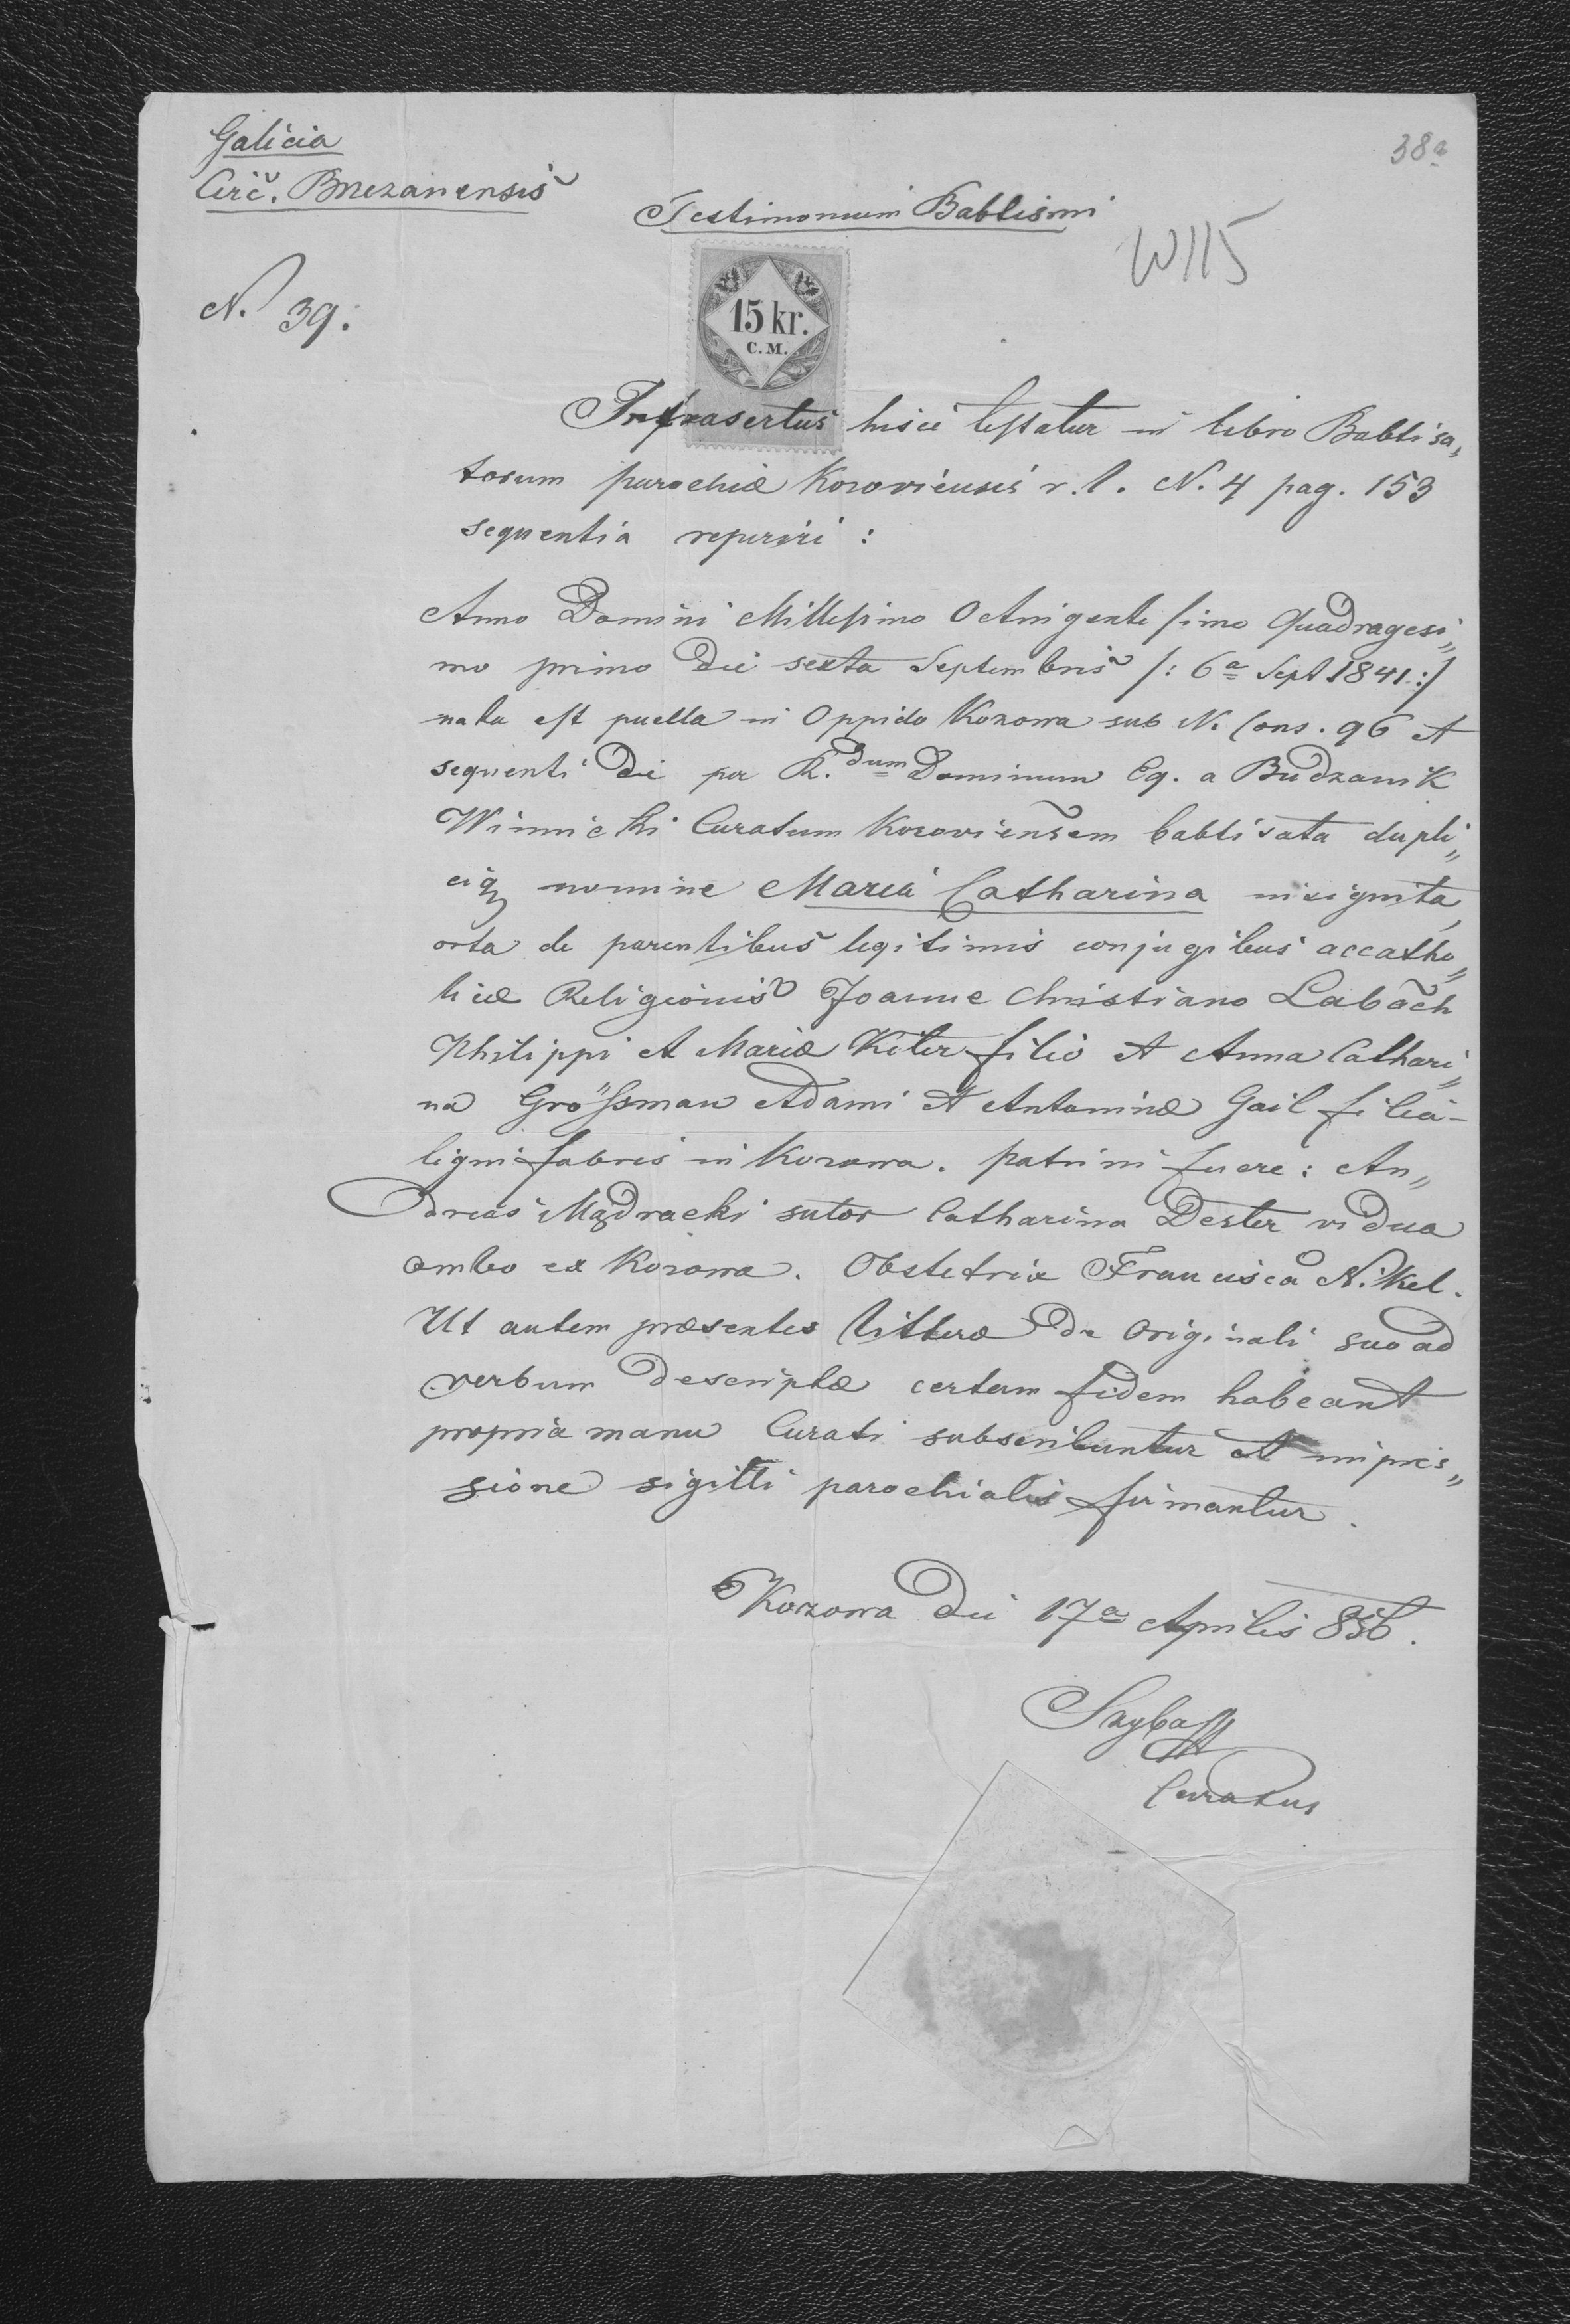 Galicia
Circ. Brzezanensis
38a
Testimonium Babtismi
W115
N. 39.
15 kr.
C.M.
Infrasertus hisce testatur in libro Babtisa„
torum parochiæ Kozoviensis r. l. N. 4 pag. 153
sequentia reperiri :
Anno Domini Millesimo Octingentesimo Quadragesi„
mo primo die sexta Septembris /: 6a Sept 1841 :/
nata est puella in Oppido Kozowa sub N. Cons. 96 et
sequenti die per R.dum Dominum Eq. a Budzanik
Winnicki Curatum Kozoviensem babtisata dupli„
ciq nomine Maria Catharina insignita,
orta de parentibus legitimis conjugibus accatho„
licæ Religionis Joanne Christiano Labach
Philippi et Mariæ Kiter filio et Anna Cathari„
na Größman Adami et Antoninæ Gail filia -
lignifabris in Kozowa. patrini fuere : An„
dreas Mądracki sutor Catharina Dester vidua
ambo ex Kozowa. Obstetrix Francisca Nikel.
Ut autem præsentes litteræ de Originali suo ad
verbum descriptæ certam fidem habeant
propria manu Curati subscribuntur et impres„
sione sigilli parochialis firmantur.
Kozowa die 17a Aprilis 856.
Curatus